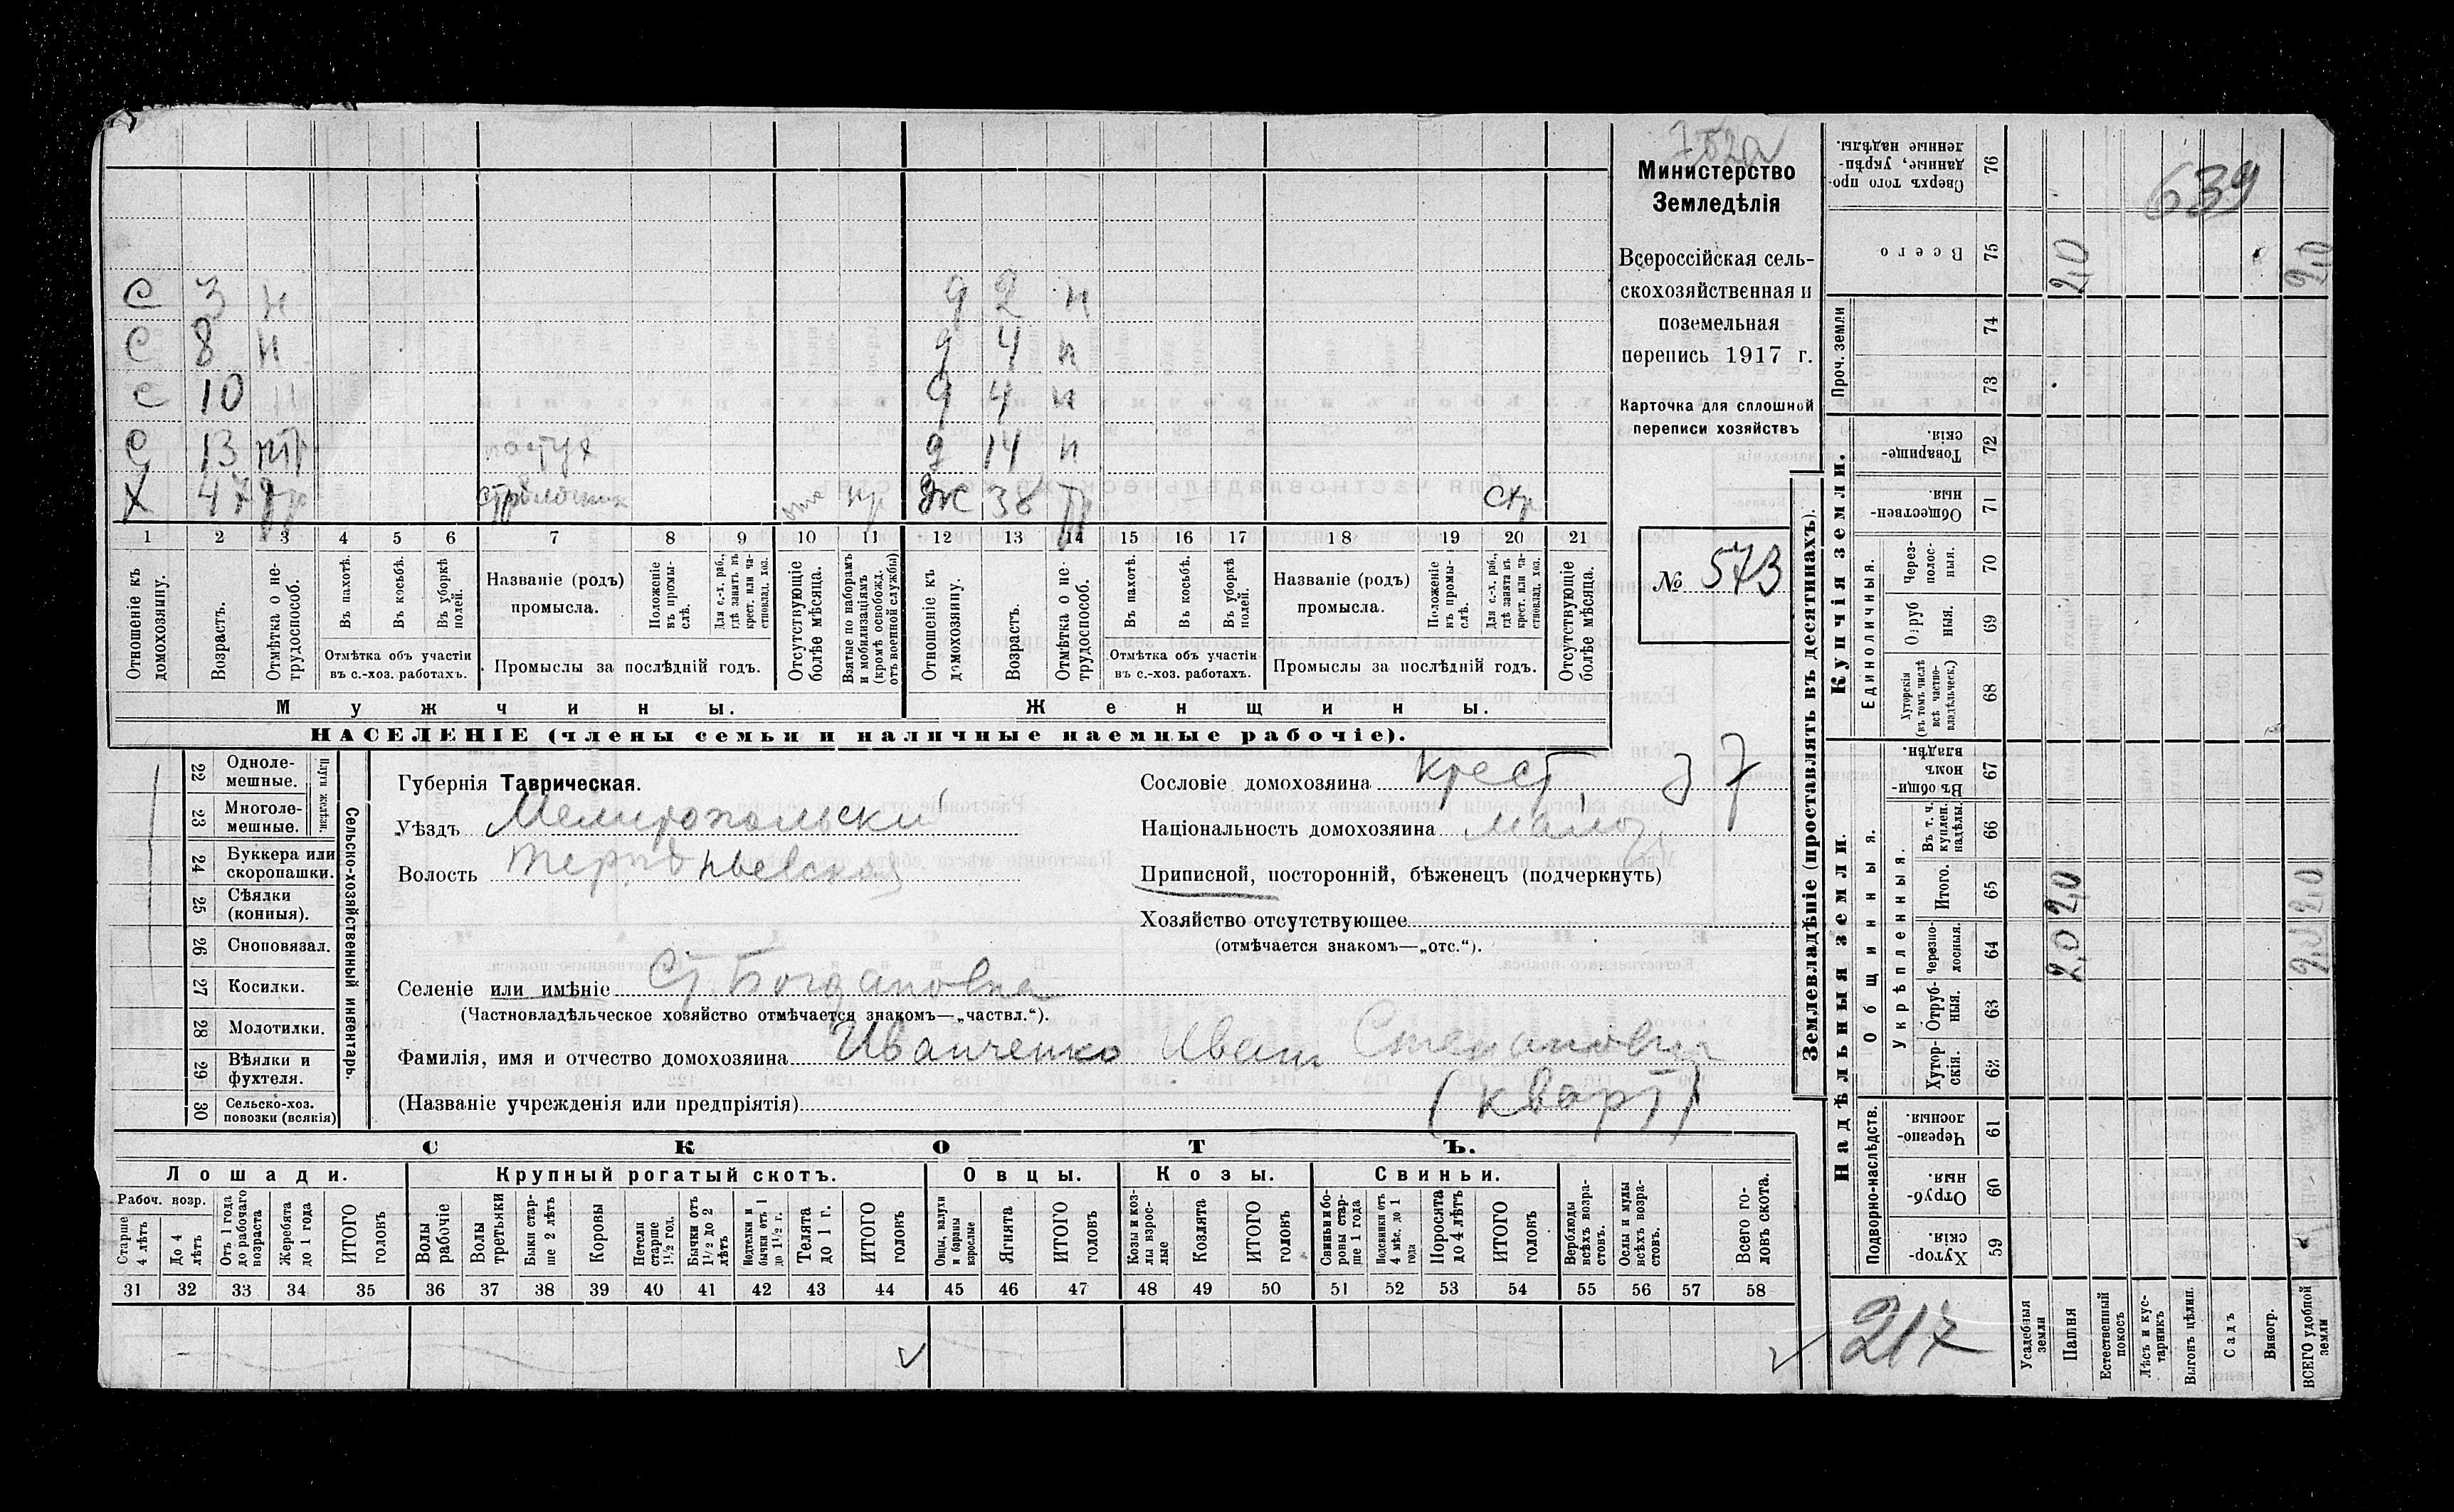 Министерство
Земледѣлія
Всероссійская сель-
скохозяйственная и
поземельная
перепись 1917 г.
Карточка для сплошной
переписи хозяйствъ
№ 573
639
С 3 н
С 8 н
С 10 н
С 13 пастух
Х 47
д 2 н
д 4 н
д 4 н
д 14 н
Ж 38
1 2 3 4 5 6 7 8 9 10 11 12 13 14 15 16 17 18 19 20 21
Отношеніе къ домохозяину.
Возрастъ.
Отмѣтка о не-трудоспособ.
Въ пахотѣ.
Въ косьбѣ.
Въ уборкѣ полей.
Отмѣтка объ участіи
въ с.-хоз. работахъ.
Названіе (родъ)
промысла.
Положеніе въ промы-слѣ.
Для с.-х. раб., гдѣ занятъ въ крест. или ча-стновлад. хоз.
Промыслы за послѣдній годъ.
Отсутствующіе болѣе мѣсяца.
Взятые по наборамъ и мобилизаціямъ (кромѣ освобожд. отъ военной службы)
Отношеніе къ домохозяину.
Возрастъ.
Отмѣтка о не-трудоспособ.
Въ пахотѣ.
Въ косьбѣ.
Въ уборкѣ полей.
Отмѣтка объ участіи
въ с.-хоз. работахъ.
Названіе (родъ)
промысла.
Положеніе въ промы-слѣ.
Для с.-х. раб., гдѣ занята въ крест. или ча-стновлад. хоз.
Промыслы за послѣдній годъ.
Отсутствующіе болѣе мѣсяца.
Мужчины.
Женщины.
НАСЕЛЕНІЕ (члены семьи и наличные наемные рабочіе).
Сельско-хозяйственный инвентарь.
Плуги желѣзн.
22 Одноле-мешные.
23 Многоле-мешные.
24 Буккера или скоропашки.
25 Сѣялки (конныя).
26 Сноповязал.
27 Косилки.
28 Молотилки.
29 Вѣялки и фухтеля.
30 Сельско-хоз. повозки (всякія)
Губернія Таврическая.
Уѣздъ Мелитопольский
Волость
Селеніе или имѣніе Ст. Богдановка
(Частновладѣльческое хозяйство отмѣчается знакомъ—„частвл.“).
Фамилія, имя и отчество домохозяина Иванченко Иван Степанович
(Названіе учрежденія или предпріятія) (кварт)
Сословіе домохозяина крест, 37
Національность домохозяина малор.
Приписной, посторонній, бѣженецъ (подчеркнуть)
Хозяйство отсутствующее
(отмѣчается знакомъ—„отс.“).
СКОТЪ.
Лошади.
Крупный рогатый скотъ.
Овцы.
Козы.
Свиньи.
Рабоч. возр.
Старше 4 лѣтъ
До 4 лѣтъ
Отъ 1 года до рабочаго возраста
Жеребята до 1 года
ИТОГО головъ
Волы рабочіе
Волы третьяки
Быки стар-ше 2 лѣтъ
Коровы
Нетели старше 1½ год.
Бычки отъ 1½ до 2 лѣтъ
Подтелки и бычки отъ 1 до 1½ г.
Телята до 1 г.
ИТОГО головъ
Овцы, валухи и бараны взрослые
Ягнята
ИТОГО головъ
Козы и коз-лы взрос-лые
Козлята
ИТОГО головъ
Свиньи и бо-ровы стар-ше 1 года
Подсвинки отъ 4 мѣс. до 1 года
Поросята до 4 лѣтъ
ИТОГО головъ
Верблюды всѣхъ возра-стовъ.
Ослы и мулы всѣхъ возра-стовъ.
Всего го-ловъ скота.
31 32 33 34 35 36 37 38 39 40 41 42 43 44 45 46 47 48 49 50 51 52 53 54 55 56 57 58
Землевладѣніе (проставлять въ десятинахъ).
Надѣльныя земли.
Купчія земли.
Проч. земли
Подворно-наслѣдств.
Общинныя.
Укрѣпленныя.
Единоличныя.
Сверхъ того про-данные, укрѣп-ленные надѣлы. 76
Всего 75 2,0 2,0
74
73
Товарище-скія. 72
Обществен-ныя 71
Через-полос-ныя. 70
Отруб ныя. 69
Хуторскія (въ томъ числѣ всѣ частно-владѣльческ.) 68
Въ общи-номъ владѣн. 67
Въ т. ч. куплен. надѣлы. 66
Итого. 65 2,0 2,0
Черезпо-лосныя. 64 2,0 2,0
Отруб-ныя. 63
Хутор-скія. 62
Черезпо-лосныя 61
Отруб-ныя. 60
Хутор-скія. 59
217
Усадебныя земли
Пашня
Естественный покосъ
Лѣсъ и кус-тарникъ
Выгонъ цѣлин.
Садъ
Виногр.
ВСЕГО удобной земли